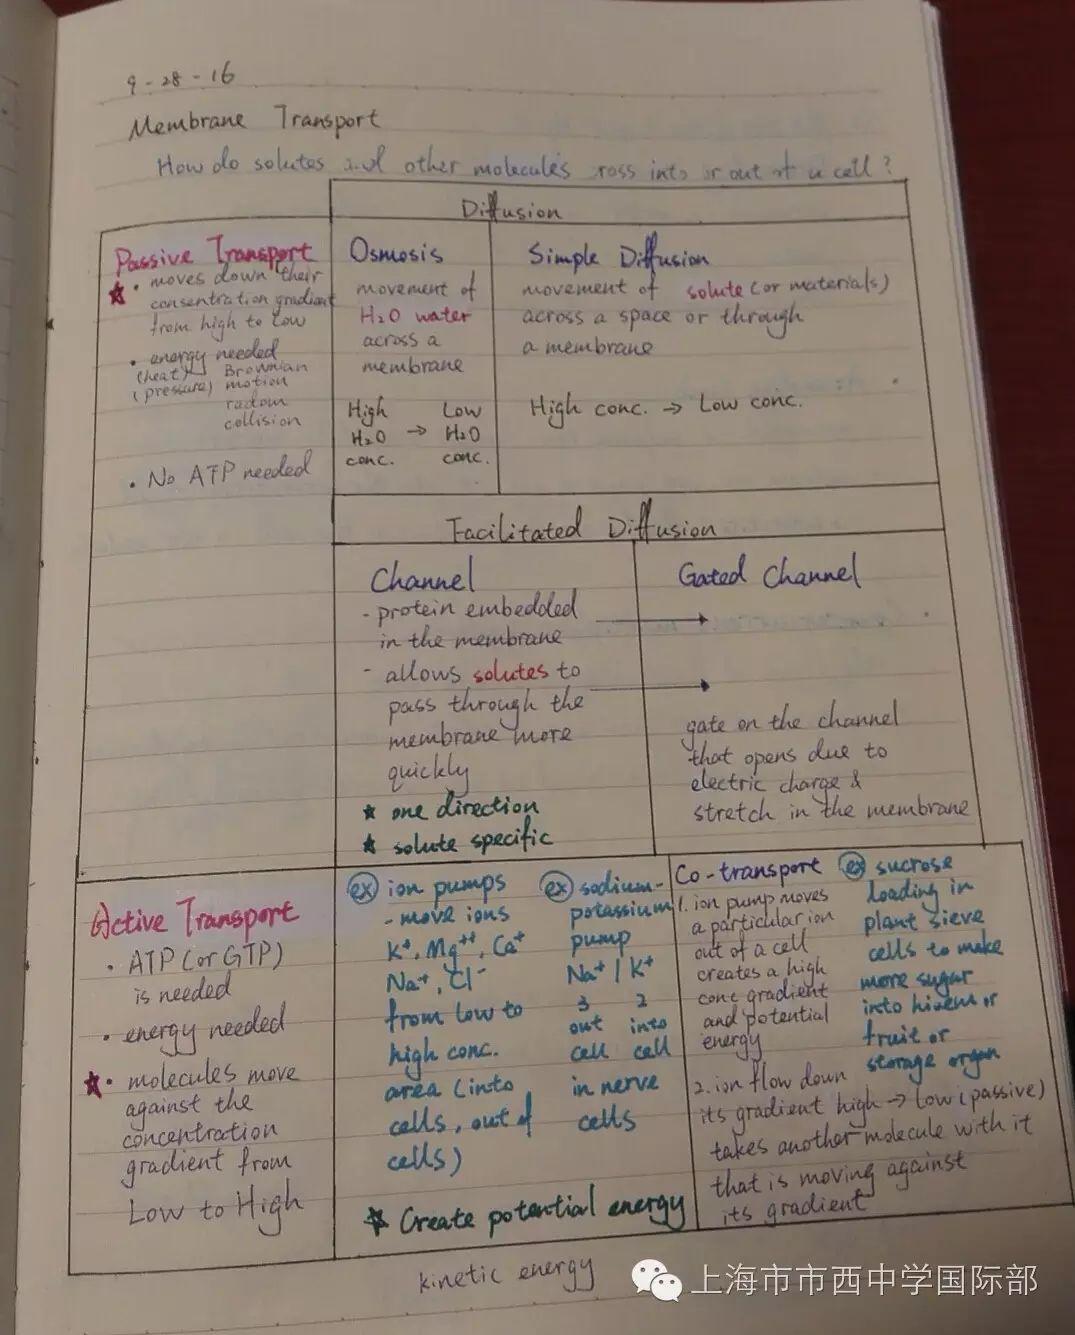 9-28-16
Membrane Transport
How do solutes and other molecules cross into or out of a cell?
Diffusion
Passive Transport
★ · moves down their
consentration gradient
from high to low
· energy needed
(heat) Brownian
(pressure) motion
radom
collision
· No ATP needed
Osmosis
movement of
H₂O water
across a
membrane
High Low
H₂O → H₂O
conc. conc.
Simple Diffusion
movement of solute (or materials)
across a space or through
a membrane
High conc. → Low conc.
Facilitated Diffusion
Channel
- protein embedded
in the membrane
- allows solutes to
pass through the
membrane more
quickly
★ one direction
★ solute specific
Gated Channel
gate on the channel
that opens due to
electric charge &
stretch in the membrane
Active Transport
· ATP (or GTP)
is needed
· energy needed
★ · molecules move
against the
concentration
gradient from
Low to High
ex ion pumps
- move ions
K⁺, Mg⁺⁺, Ca⁺
Na⁺, Cl⁻
from low to
high conc.
area (into
cells, out of
cells)
ex sodium-
potassium
pump
Na⁺ / K⁺
3 2
out into
cell cell
in nerve
cells
★ Create potential energy
Co-transport
1. ion pump moves
a particular ion
out of a cell
creates a high
conc gradient
and potential
energy
2. ion flow down
its gradient high → low (passive)
takes another molecule with it
that is moving against
its gradient
ex sucrose
loading in
plant sieve
cells to make
more sugar
into
fruit or
storage organ
kinetic energy
上海市市西中学国际部